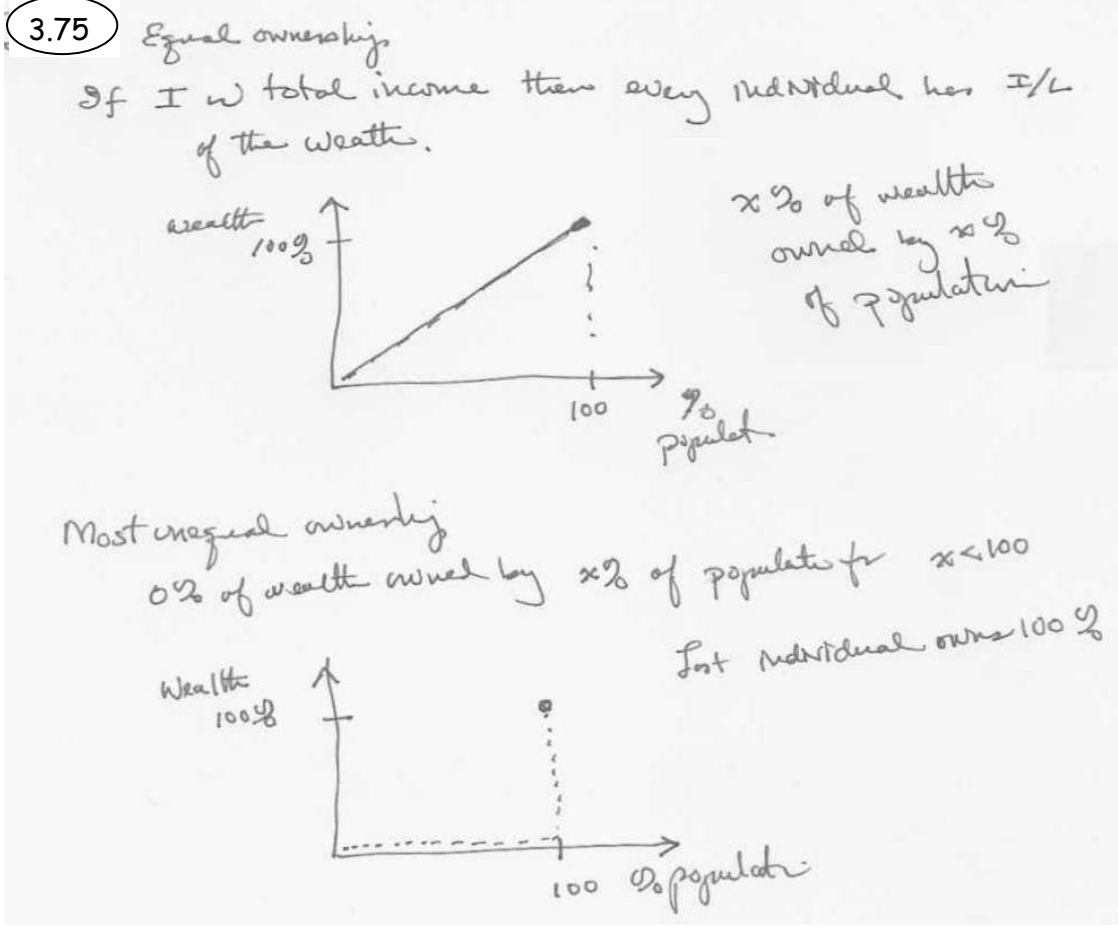 3.75
Equal ownership
If I is total income then every individual has I/L
of the weath.
wealth
100%
x% of wealth
owned by x%
of population
100
%
populat
Most unequal ownership
0% of wealth owned by x% of populatio for x<100
Last individual owns 100%
Wealth
100%
100 % populati